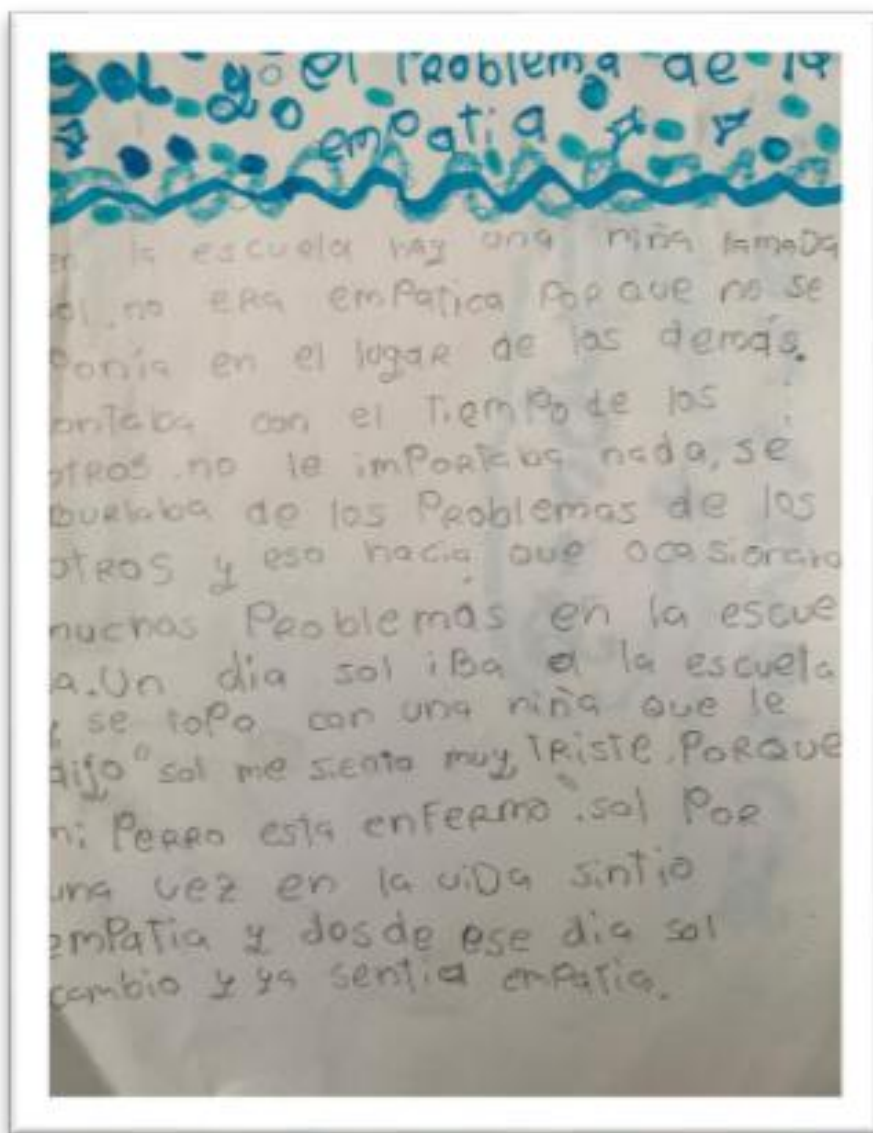 Sol y el Problema de la
empatia
en la escuela hay una niña lamaDa
sol. no ERA emPatica PoR que no se
Ponía en el lugaR de los demás.
contaba con el TiemPo de los
otROS. no le imPoRtaba nada, se
buRlaba de los PRoblemas de los
otROS y eso hacia que ocasionara
muchos PRoblemas en la escue
a. Un dia sol iBa a la escuela
y se toPo con una niña que le
dijo "sol me siento muy TRiste. PoRQue
mi PeRRo esta enfeRmo". sol PoR
una vez en la viDa sintio
emPaTia y dosde ese dia sol
cambio y ya sentia emPatia.